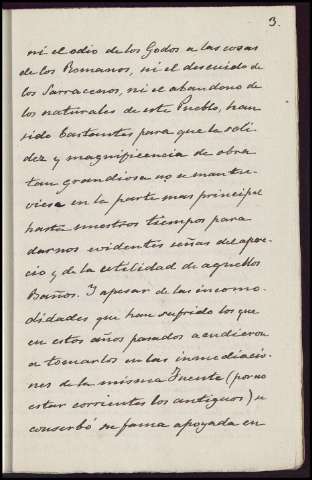 3.
ni el odio de los Godos a las cosas
de los Romanos, ni el descuido de
los Sarracenos, ni el abandono de
los naturales de este Pueblo, han
sido bastantes para que la soli-
dez y magnificencia de obra
tan grandiosa no se mantu-
viese en la parte mas principal
hasta nuestros tiempos para
darnos evidentes señas del apre-
cio y de la utilidad de aquellos
Baños. Y apesar de las incomo-
didades que han sufrido los que
en estos años pasados acudieron
a tomarlos en las inmediacio-
nes de la misma Fuente (por no
estar corrientes los antiguos) se
conserbó su fama apoyada en